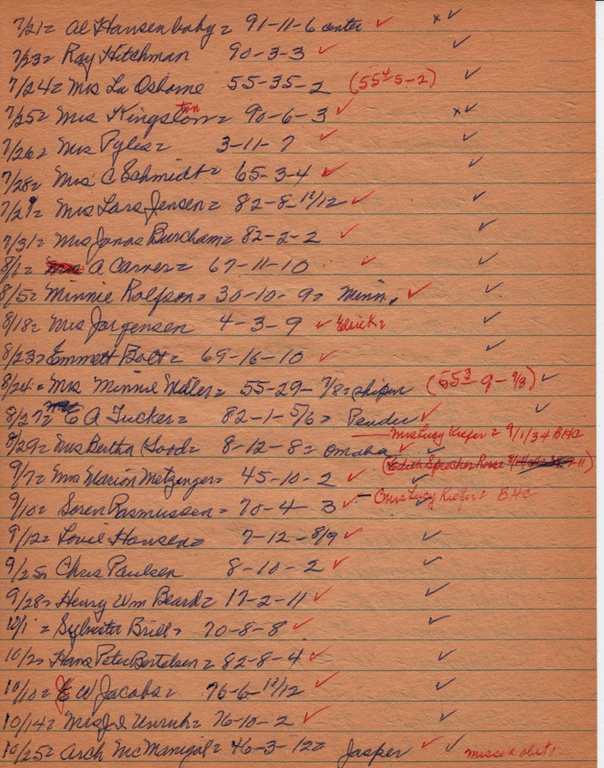 7/21= Al Hansen baby = 91-11-6 center ✓ x✓
7/23= Ray Hitchman 90-3-3 ✓ ✓
7/24= Mrs La Osborne 55-35-2 (55⁴5-2) ✓
7/25= Mrs Kingston = 90-6-3 ✓ x✓
7/26= Mrs Pyles= 3-11-7 ✓ ✓
7/28= Mrs C Schmidt= 65-3-4 ✓ ✓
7/29= Mrs Lars Jensen= 82-8-11/12 ✓ ✓
7/31= Mrs Jonas Burcham= 82-2-2 ✓ ✓
8/1= A Carver= 67-11-10 ✓ ✓
8/5= Minnie Rolfson= 30-10-9= Minn. ✓ ✓
8/18= Mrs Jorgensen 4-3-9 ✓ ✓
8/23= Emmett Bolt= 69-16-10 ✓ ✓
8/24= Mrs Minnie Miller= 55-29-7/8= (55³-9-7/8) ✓
8/27= C A Tucker= 82-1-5/6= Pender ✓ ✓
Mrs Lucy Kiefer = 9/1/34 BHC
8/29= Mrs Bertha Good= 8-12-8= Omaha ✓ ✓
(Edith Sprecher Rose=
9/7= Mrs Marion Metzinger= 45-10-2 ✓ ✓
Mrs Lucy Kiefer= BHC
9/10= Soren Rasmussen= 70-4-3 ✓
9/12= Lovie Hansen= 7-12-8/9 ✓ ✓
9/25= Chris Paulsen 8-10-2 ✓ ✓
9/28= Henry Wm Beard= 17-2-11 ✓ ✓
10/1= Sylvester Brill= 70-8-8 ✓ ✓
10/2= Hans Peter Bertelsen= 82-8-4 ✓ ✓
10/10= E W Jacobs= 76-6-11/12 ✓ ✓
10/14= Mrs J D Unruh= 76-10-2 ✓ ✓
10/25= Arch McManigal= 46-3-12= Jasper ✓ ✓